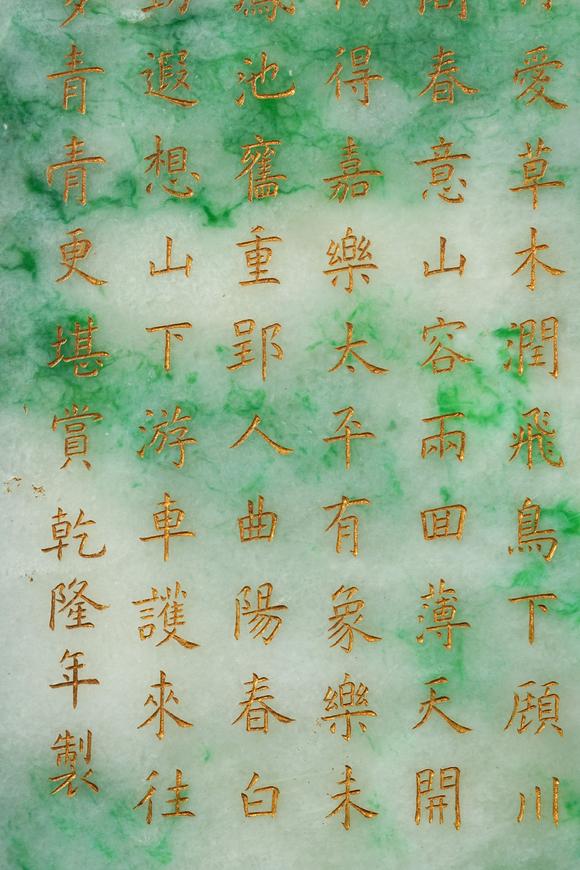 愛草木潤飛鳥下頋川
春意山容兩囬薄天開
得嘉樂太平有象樂未
池舊重郢人曲陽春白
遐想山下游車護來往
青青更堪賞乾隆年製